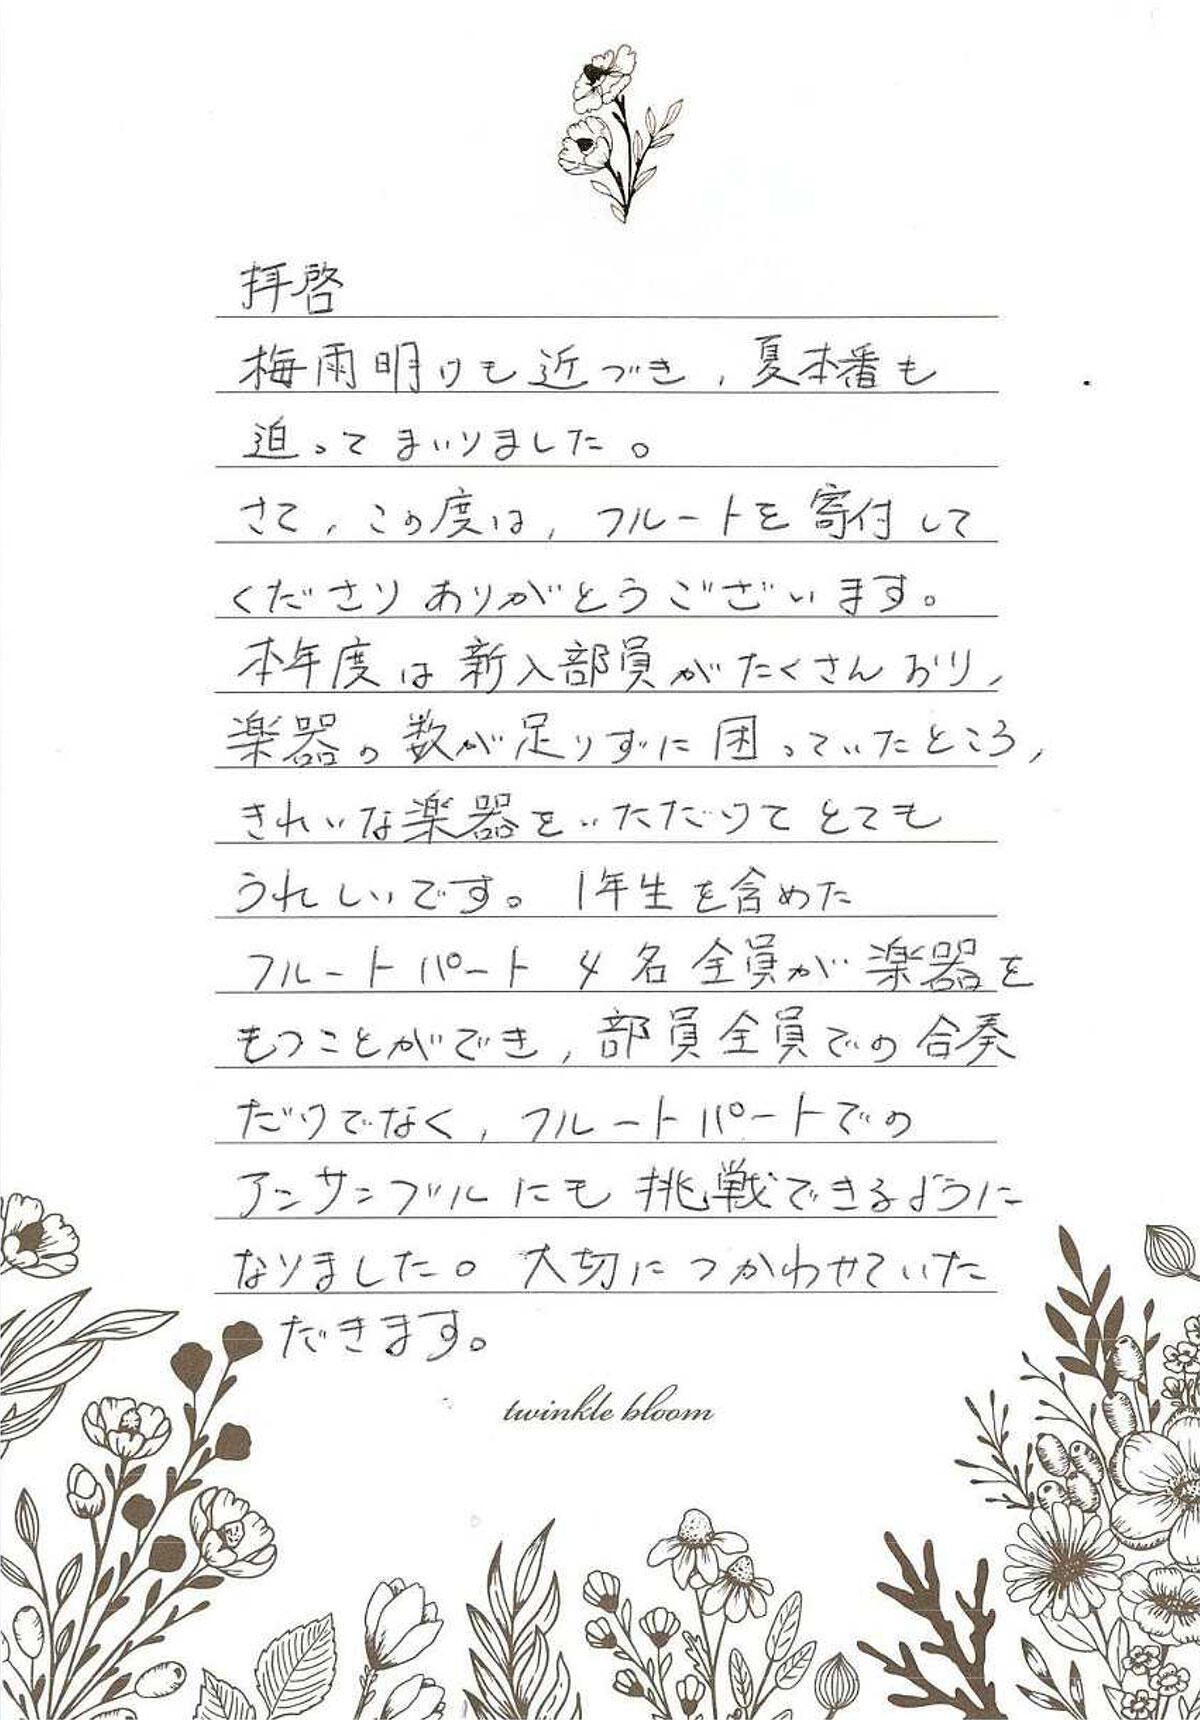 拝啓
梅雨明けも近づき，夏本番も
迫ってまいりました。
さて，この度は，フルートを寄付して
くださりありがとうございます。
本年度は新入部員がたくさんおり，
楽器の数が足りずに困っていたところ，
きれいな楽器をいただけてとても
うれしいです。1年生を含めた
フルートパート4名全員が楽器を
もつことができ，部員全員での合奏
だけでなく，フルートパートでの
アンサンブルにも挑戦できるように
なりました。大切につかわせていた
だきます。
twinkle bloom